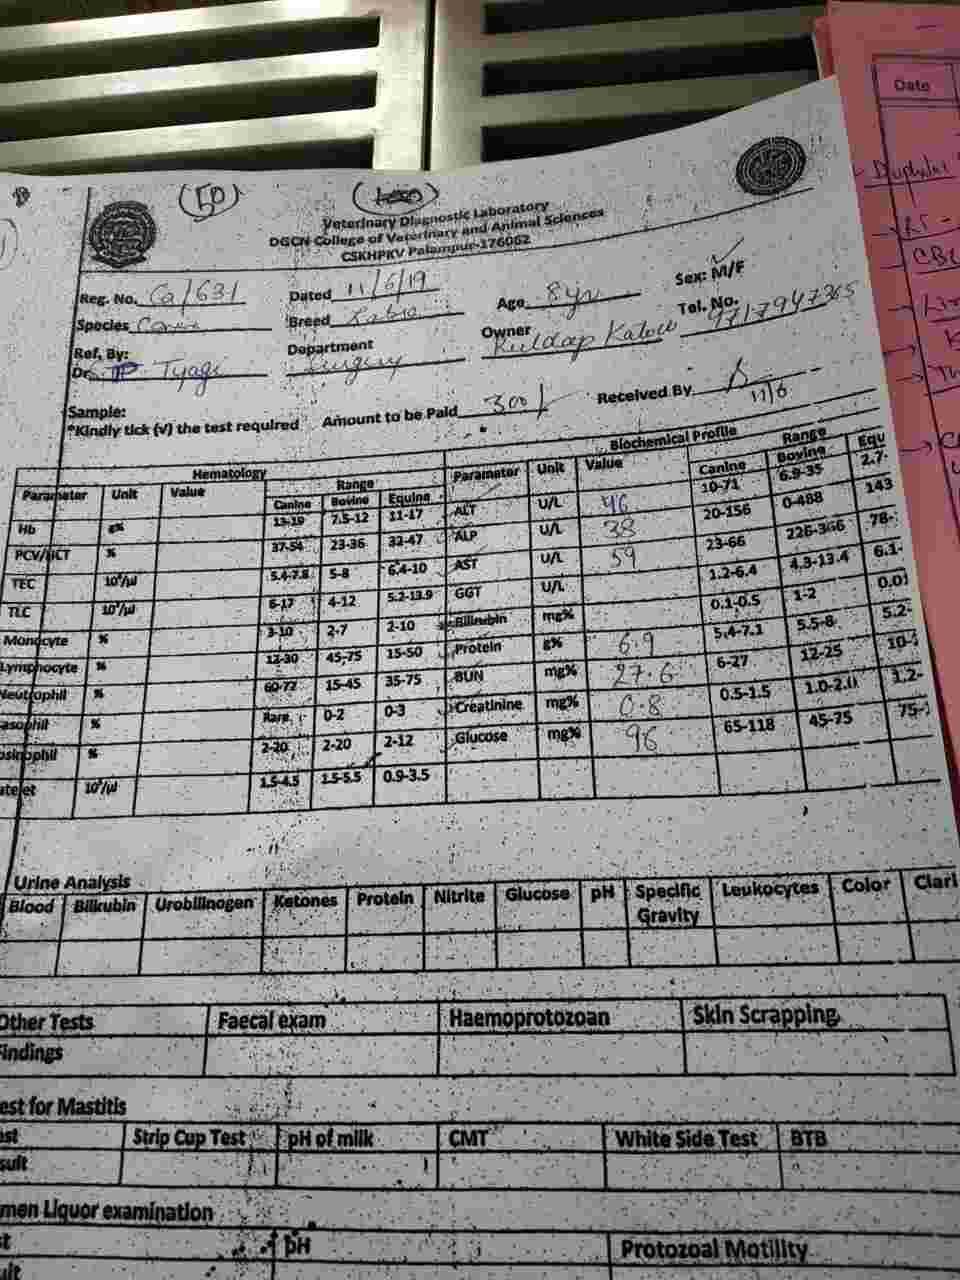 (50)
Veterinary Diagnostic Laboratory
DGCN College of Veterinary and Animal Sciences
CSKHPKV Palampur-176062
Reg. No. Ca/631 Dated 11/6/19 Age 8 yr Sex: M/F
Species Breed Owner Tel. No.
Ref, By: Department Kuldap
Dr. Tyagi Surgery
Sample: Amount to be Paid 300/ Received By
*Kindly tick (√) the test required 11/6
Hematology Biochemical Profile
Parameter Unit Value Range Parameter Unit Value Range
Canine Bovine Equine Canine Bovine Equ
Hb g% 13-19 7.5-12 11-17 ALT U/L 46 10-71 6.9-35 2.7-
PCV/HCT % 37-54 23-36 32-47 ALP U/L 38 20-156 0-488 143
TEC 10⁶/µl 5.4-7.8 5-8 6.4-10 AST U/L 59 23-66 226-366 78-
TLC 10³/µl 6-17 4-12 5.2-13.9 GGT U/L 1.2-6.4 4.3-13.4 6.1-
Monocyte % 3-10 2-7 2-10 Bilirubin mg% 0.1-0.5 1-2 0.01
Lymphocyte % 12-30 45-75 15-50 Protein g% 6.9 5.4-7.1 5.5-8 5.2-
Neutrophil % 60-77 15-45 35-75 BUN mg% 27.6 6-27 12-25 10-
asophil % Rare 0-2 0-3 Creatinine mg% 0.8 0.5-1.5 1.0-2.0 1.2-
osinophil % 2-20 2-20 2-12 Glucose mg% 96 65-118 45-75 75-
atelet 10⁵/µl 1.5-4.5 1.5-5.5 0.9-3.5
Urine Analysis
Blood Bilirubin Urobilinogen Ketones Protein Nitrite Glucose pH Specific Gravity Leukocytes Color Clari
Other Tests Faecal exam Haemoprotozoan Skin Scrapping
Findings
est for Mastitis
est Strip Cup Test pH of milk CMT White Side Test BTB
sult
men Liquor examination
st pH Protozoal Motility
ult
Date
CBC